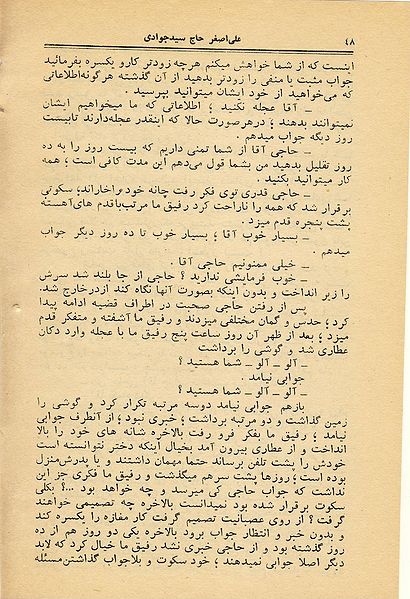 ۴۸ علی‌اصغر حاج سیدجوادی
اینست که از شما خواهش میکنم هرچه زودتر کارو یکسره بفرمائید
جواب مثبت یا منفی را زودتر بدهید از آن گذشته هرگونه‌اطلاعاتی
که می‌خواهید از خود ایشان میتوانید بپرسید .
ـ آقا عجله نکنید ؛ اطلاعاتی که ما میخواهیم ایشان
نمیتوانند بدهند ؛ درهرصورت حالا که اینقدر عجله‌دارند تابیست
روز دیگه جواب میدهم .
ـ حاجی آقا از شما تمنی داریم که بیست روز را به ده
روز تقلیل بدهید من بشما قول می‌دهم این مدت کافی است ؛ همه
کار میتوانید بکنید .
ـ حاجی قدری توی فکر رفت چانه خود را خاراند؛ سکوتی
برقرار شد که همه را ناراحت کرد رفیق ما مرتب‌باقدم های‌آهسته
پشت پنجره قدم میزد .
ـ بسیار خوب آقا ؛ بسیار خوب تا ده روز دیگر جواب
میدهم .
ـ خیلی ممنونیم حاجی آقا .
ـ خوب فرمایشی ندارید ؟ حاجی از جا بلند شد سرش
را زیر انداخت و بدون اینکه بصورت آنها نگاه کند ازدرخارج شد.
پس از رفتن حاجی صحبت در اطراف قضیه ادامه پیدا
کرد ؛ حدس و گمان مختلفی میزدند و رفیق ما آشفته و متفکر قدم
میزد ؛ بعد از ظهر آن روز ساعت پنج رفیق ما با عجله وارد دکان
عطاری شد و گوشی را برداشت
ـ آلو ـ آلو ـ شما هستید ؟
جوابی نیامد .
ـ آلو ـ آلو ـ شما هستید ؟
بازهم جوابی نیامد دوسه مرتبه تکرار کرد و گوشی را
زمین گذاشت و دو مرتبه برداشت ؛ خبری نبود ؛ از آنطرف جوابی
نیامد ؛ رفیق ما بفکر فرو رفت بالاخره شانه های خود را بالا
انداخت و از عطاری بیرون آمد بخیال اینکه دختر نتوانسته است
خودش را پشت تلفن برساند حتما مهمان داشتند و یا پدرش‌منزل
بوده است ؛ روزها پشت سرهم میگذشت و رفیق ما فکری جز این
نداشت که جواب حاجی کی میرسد و چه خواهد بود ...؟ بکلی
سکوت برقرار شده بود نمیدانست بالاخره چه تصمیمی خواهند
گرفت ؟ از روی عصبانیت تصمیم گرفت کار مغازه را یکسره کند
و بدون خبر و انتظار جواب برود بالاخره یکی دو روز هم از ده
روز گذشته بود و از حاجی خبری نشد رفیق ما خیال کرد که لابد
دیگر اصلا جوابی نمیدهند ؛ خود سکوت و بلاجواب گذاشتن‌مسئله